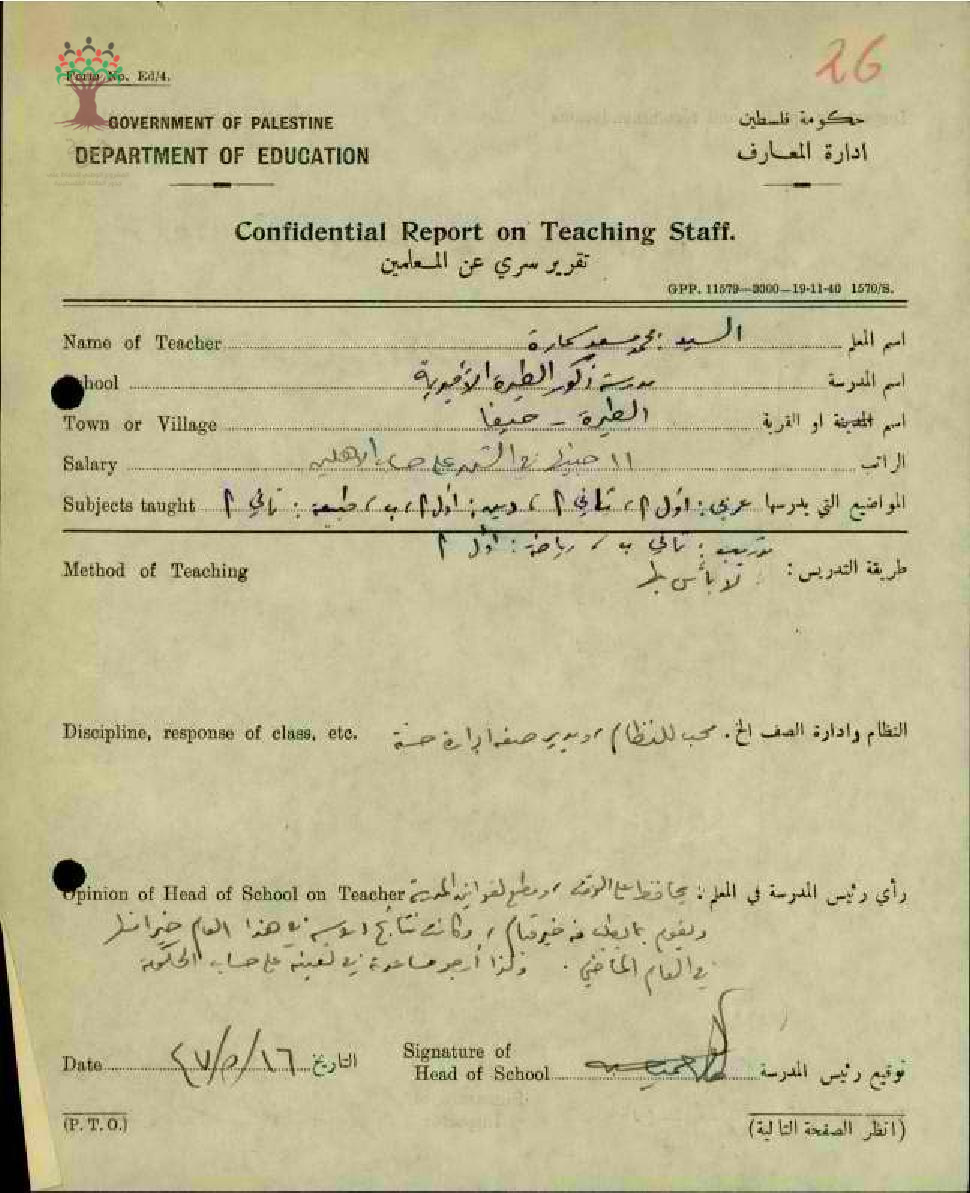 26
Form No. Ed/4.
GOVERNMENT OF PALESTINE
حكومة فلسطين
DEPARTMENT OF EDUCATION
ادارة المعارف
Confidential Report on Teaching Staff.
تقرير سري عن المعلمين
GPP. 11579—3000—19-11-40 1570/S.
Name of Teacher السيد محمد سعد اسم المعلم
School مدرسة ذكور الطيرة الأميرية اسم المدرسة
Town or Village الطيرة - حيفا اسم المدينة او القرية
Salary ١١ جنيه في الشهر على حساب الأهلين الراتب
Subjects taught المواضيع التي يدرسها عربي: أول ٢، ثاني ٢، دين: أول ٢، ب، طبيعة: ثاني ٢
ثاني ب، رياضة: أول ٢
Method of Teaching طريقة التدريس: لا بأس بها
Discipline, response of class, etc. النظام وادارة الصف الخ. محب للنظام، ويدير صفه إدارة حسنة
Opinion of Head of School on Teacher رأي رئيس المدرسة في المعلم: يحافظ على الوقت، ومطيع لقوانين المدرسة
ويقوم بما يطلب منه خير قيام، وكانت نتائج في هذا العام خيرا منها
في العام الماضي. ولذا أرجو مساعدته في تعيينه على حساب الحكومة
Date ١٦/٥/٤٧ التاريخ
Signature of
Head of School توقيع رئيس المدرسة
(P. T. O.) (انظر الصفحة التالية)